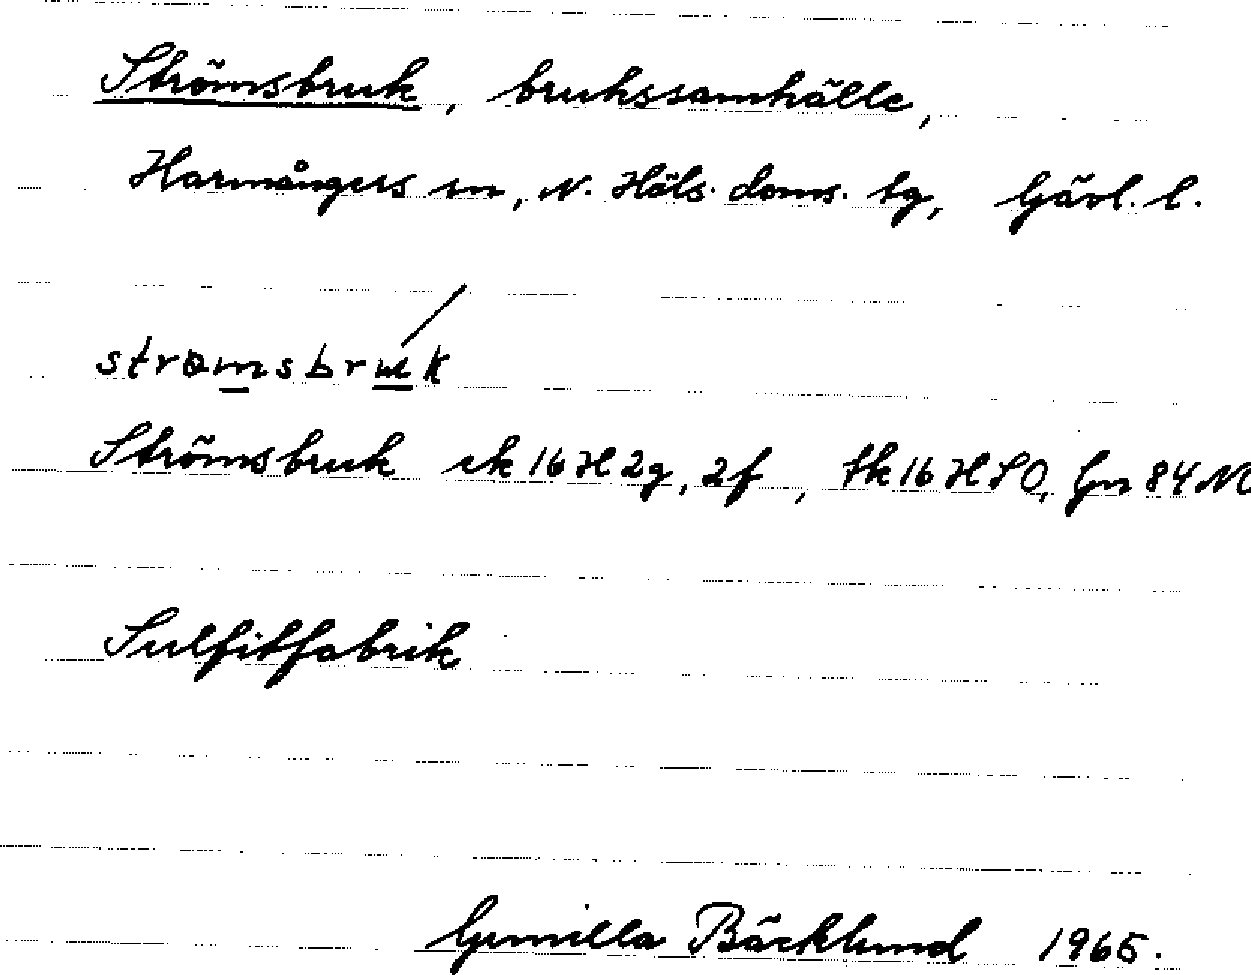 Strömsbruk, brukssamhälle,
Harmångers sn, N. Häls. doms. tg, Gävl. l.
strømsbruk
Strömsbruk ek 16 H 2g, 2f, tk 16 H SO, Gn 84 M
Sulfitfabrik
Gunilla Bäcklund 1965.